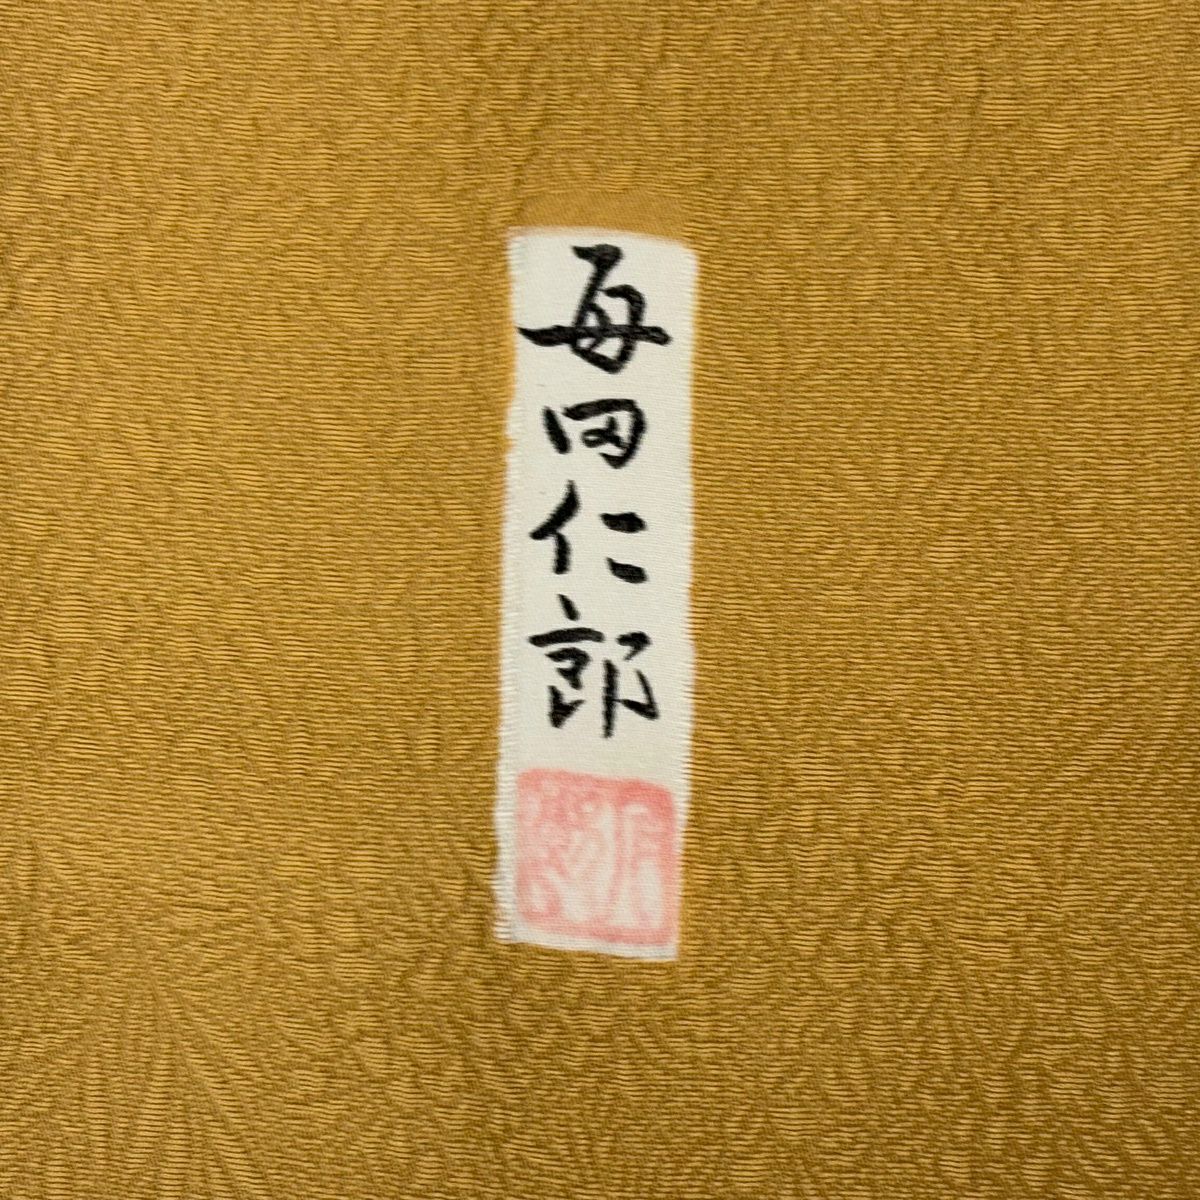 毎田仁郎